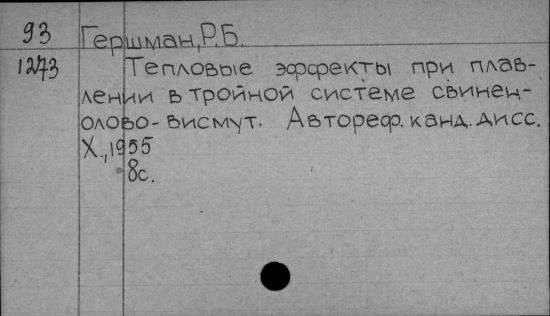 93 Гершман, Р.Б.
1273 Тепловые эффекты при плав-
лении в тройной системе свинец-
олово-висмут. Автореф. канд. дисс.
Х., 1955
8с.